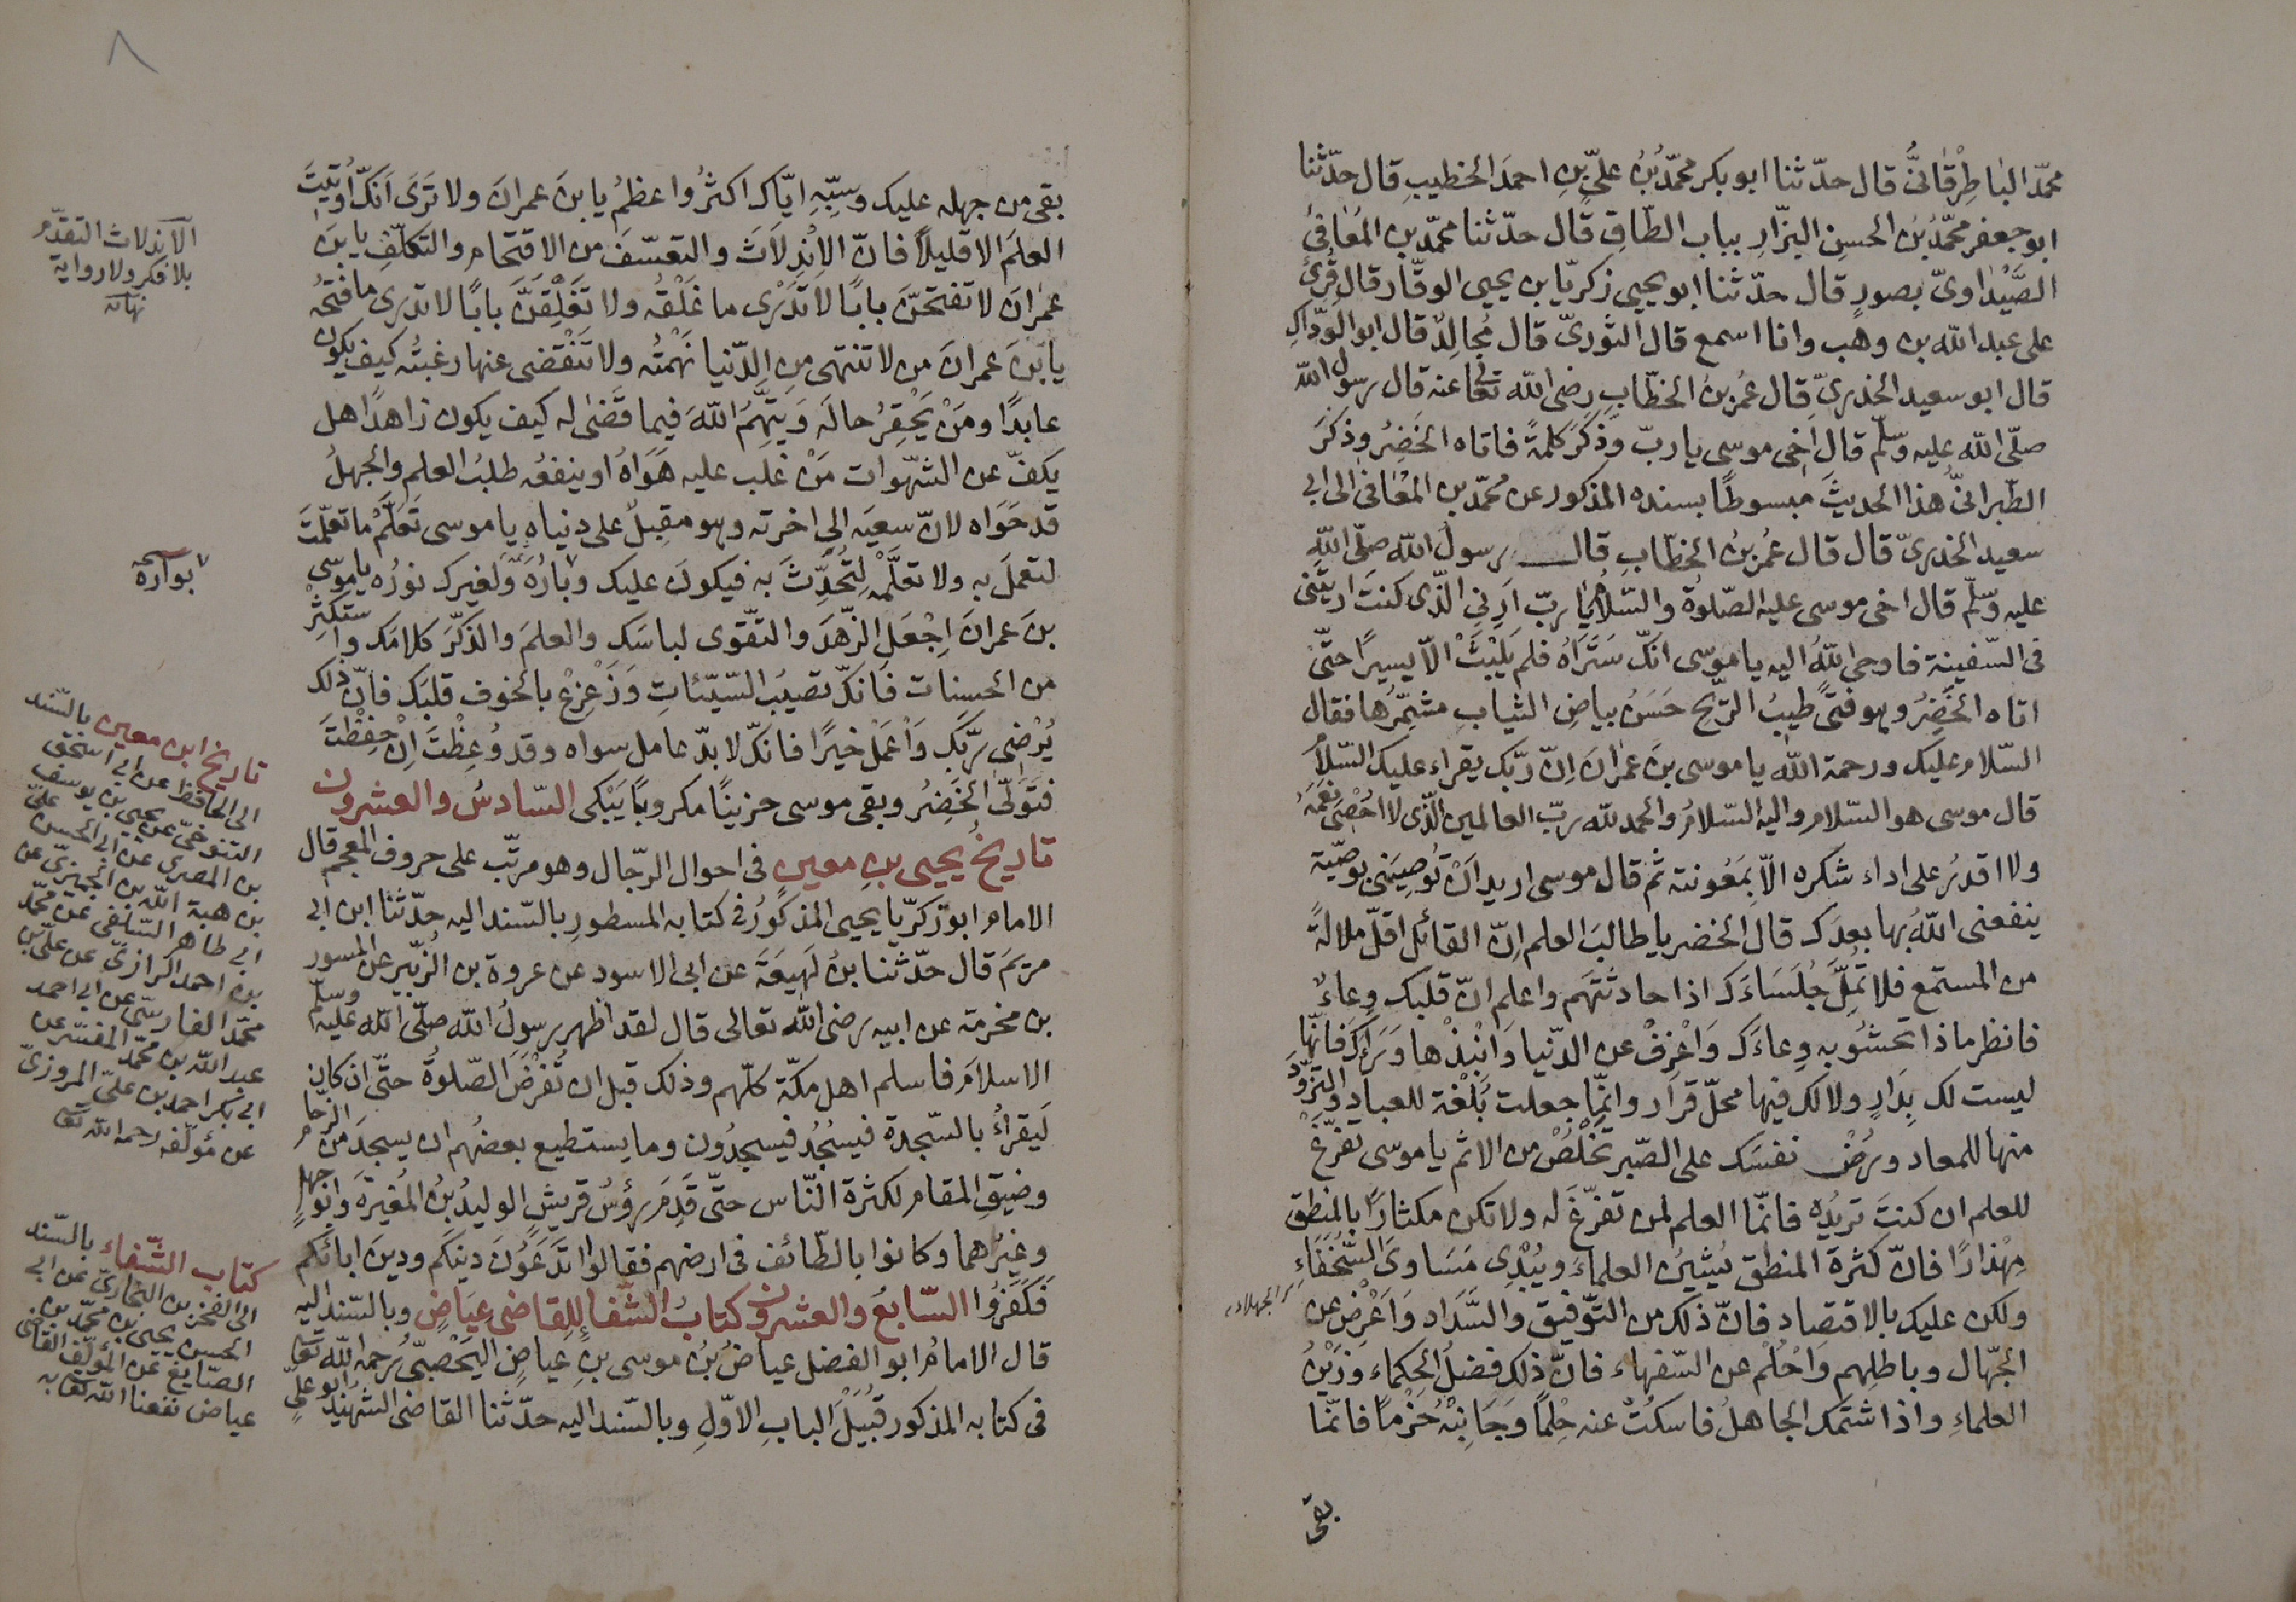 محمّد الباطِرْقانیُّ قال حدّثنا ابو بکر محمّدُ بنُ علیّ بنِ احمدَ الخطیبِ قال حدّثنا
ابو جعفر محمّدُ بنُ الحسنِ البزّارِ بباب الطّاقِ قال حدّثنا محمّد بن المُعافیٰ
الصَّیْداویّ بصورٍ قال حدّثنا ابو یحیی زکریّا بن یحیی الوقّار قال قُرئَ
علی عبد اللّه بن وهب وانا اسمع قال الثوریّ قال مُجالِدٌ قال ابو الودّاکِ
قال ابو سعید الخدریّ قال عُمر بنُ الخطّابِ رضی اللّه تعالی عنه قال رسول اللّه
صلّی اللّه علیه وسلّم قال اخی موسی یا ربّ وَذَکَرَ کلمةً فاتاه الخَضِرُ وذکَرَ
الطّبرانیُّ هذا الحدیثَ مبسوطًا بسنده المذکور عن محمّد بن المُعافیٰ الی ابی
سعید الخدریّ قال قال عُمر بنُ الخطّابِ قال رسولُ اللّه صلّی اللّه
علیه وسلّم قال اخی موسی علیه الصّلوة والسّلام یا ربّ اَرِنِی الّذی کنتَ اریتنی
فی السّفینة فاوحی اللّهُ الیه یا موسی انّکَ سَتَرَاهُ فلم یَلْبَثْ الّا یسیرًا حتّی
اتاه الخَضِرُ وهو فتیً طیبُ الرّیح حَسَنُ بیاضِ الثیابِ مشمّرُها فقال
السّلام علیک ورحمة اللّٰه یا موسی بنَ عمرانَ اِنّ ربّک یقراء علیک السّلامَ
قال موسی هو السّلام والیه السّلامُ والحمد للّه ربّ العالمین الّذی لا اُحْصی نِعَمَهُ
ولا اقدرُ علی اداء شکره الّا بِمَعُونته ثمّ قال موسی ارید اَنْ تُوصِیَنی بوصیّة
ینفعنی اللّهُ بها بعدک قال الخضر یا طالبَ العلم اِنّ القائل اقلّ ملالةً
من المستمع فلا تُمِلَّ جُلَسَاءَکَ اذا حادثتَهم واعلم انّ قلبک وِعاءٌ
فانظر ماذا تحشُو به وِعاءَکَ وَاعْزِفْ عن الدّنیا وَانْبِذْها وَرَاءَکَ فانّها
لیست لک بِدَارٍ ولا لک فیها محلّ قرار وانّما جعلت بُلْغة للعباد والتزوّدَ
منها للمعاد ورُضْ نفسَک علی الصّبر تَخْلُصْ من الاثم یا موسی تفرّغْ
للعلم ان کنتَ تریدُه فانّما العلم لمن تفرّغَ له ولا تکن مکثارًا بالمنطق
مِهْذارًا فانّ کثرةَ المنطق تُشینُ العلماءَ ویُبْدِی مَسَاویَ السُّخَفَاءِ
ولکن علیک بالاقتصاد فانّ ذلک من التّوفیق والسَّدَاد وَاعْرِضْ عن
الجهلاء
الجهّال وباطلِهم وَاحْلُمْ عن السّفهاء فانّ ذلک فضلُ الحکماء وزَیْنُ
العلماءِ واذا شتمک الجاهلُ فاسکُتْ عنه حِلمًا وَجَانِبْهُ حَزْمًا فانّما
بقی
٨
بقی من جهله علیک وسبّهِ ایّاک اکثرُ واعظمُ یا بنَ عمرانَ ولا تَرَی اَنّکَ اُوتیتَ
العلمَ الا قلیلًا فانّ الاِنْدِلَاثَ والتعسّفَ من الاقتحام والتکلّفِ یا بنَ
عمرانَ لا تفتحَنّ بابًا لا تَدْرِی ما غَلْقُه ولا تَغْلِقَنَّ بابًا لا تدری ما فَتحُه
یا بْنَ عمرانَ من لا تنتهی من الدّنیا نَهْمَتُه ولا تَنْقَضی عنها رغبتُه کیف یکون
عابدًا ومَنْ یَحْقِرُ حالَه وَیتّهِمُ اللّهَ فیما قَضٰی له کیف یکون زاهدًا هل
یَکفّ عن الشّهوات مَنْ غلب علیه هَوَاهُ او ینفعُه طلبُ العلم والجهلُ
قد حَوَاه لانّ سعیَه الی اخرته وهو مقبِلٌ علی دنیاه یا موسی تَعَلَّمْ ما تعلّمتَ
لتعملَ به ولا تعلَّمْهُ لِتُحَدِّثَ به فیکونَ علیک وبارُه ولغیرک نورُه یا موسی
بنَ عمرانَ اِجْعَلِ الزّهدَ والتقّوی لباسَک والعلمَ والذکرَ کلامَک واستکثِرْ
من الحسنات فانّکَ تصیبُ السّیّئاتِ وَزَعْزِعْ بالخوف قلبَک فانّ ذلک
یُرْضی ربَّک وَاعْمَلْ خیرًا فانّک لا بدّ عامل سواه وقد وُعِظْتَ اِنْ حفِظْتَ
فتَوَلَّی الخَضِرُ وبقی موسی حزینًا مکروبًا یَبْکی السّادسُ والعشرون
تاریخُ یحیی بنِ معین فی احوال الرّجال وهو مرتّب علی حروف المعجم قال
الامام ابو زکریّا یحیی المذکورُ فی کتابه المسطورِ بالسّند الیه حدّثنا ابن ابی
مریَم قال حدّثنا بنُ لَهیعَةَ عن ابی الاسود عن عروة بن الزّبیر عن المسور
بن مخرمة عن ابیه رضی اللّٰه تعالی قال لقد اظهر رسولُ اللّه صلّی اللّه علیه وسلّم
الاسلامَ فاسلم اهل مکّة کلّهم وذلک قبل ان تُفْرَضَ الصّلوةُ حتّی ان کان
لَیقرأُ بالسّجدة فیسْجُدُ فیسجدُون وما یستطیع بعضُهم ان یسجدَ من الزّحام
وضیقِ المقام لکثرة النّاس حتّی قَدِمَ رؤسُ قریشٍ الولیدُ بنُ المُغیرة وابو جهلٍ
وغیرُهما وکانوا بالطّائف فی ارضهم فقالوا تَدَعُونَ دینَکم ودینَ ابائکم
فَکَفَرُوا السّابعُ والعشرون کتابُ الشّفا لِلقاضی عِیَاضٍ وبالسّند الیه
قال الامامُ ابو الفضل عیاضُ بنُ موسی بنِ عیاضٍ الیَحْصبیُّ رحمه اللّه تعالی
فی کتابه المذکور قُبَیْلَ البابِ الاوّلِ وبالسّند الیه حدّثنا القاضی الشهید ابو علیٍّ
الاندلاث التقدّم
بلا فکر ولا رویة
نهایه
بواره
تاریخ ابن معین بالسّند
الی الحافظ عن ابی اسحٰق
التنوخیّ عن یحیی بن یوسف
بن المصری عن ابی الحسن علیّ
بن هبة اللّه بن الجمیزیّ عن
ابی طاهر السّلفی عن محمّد
بن احمد الرازیّ عن علیّ بن
محمّد الفارسیّ عن ابی احمد
عبد اللّه بن محمّد المفسّر عن
ابی بکر احمد بن علیّ المروزیّ
عن مؤلّفه رحمه اللّه تعالی
کتاب الشّفاء بالسّند
الی الفخر بن البخاریّ عن ابی
الحسین یحیی بن محمّد بن
الصّایغ عن المؤلّف القاضی
عیاض نفعنا اللّه تعالی به